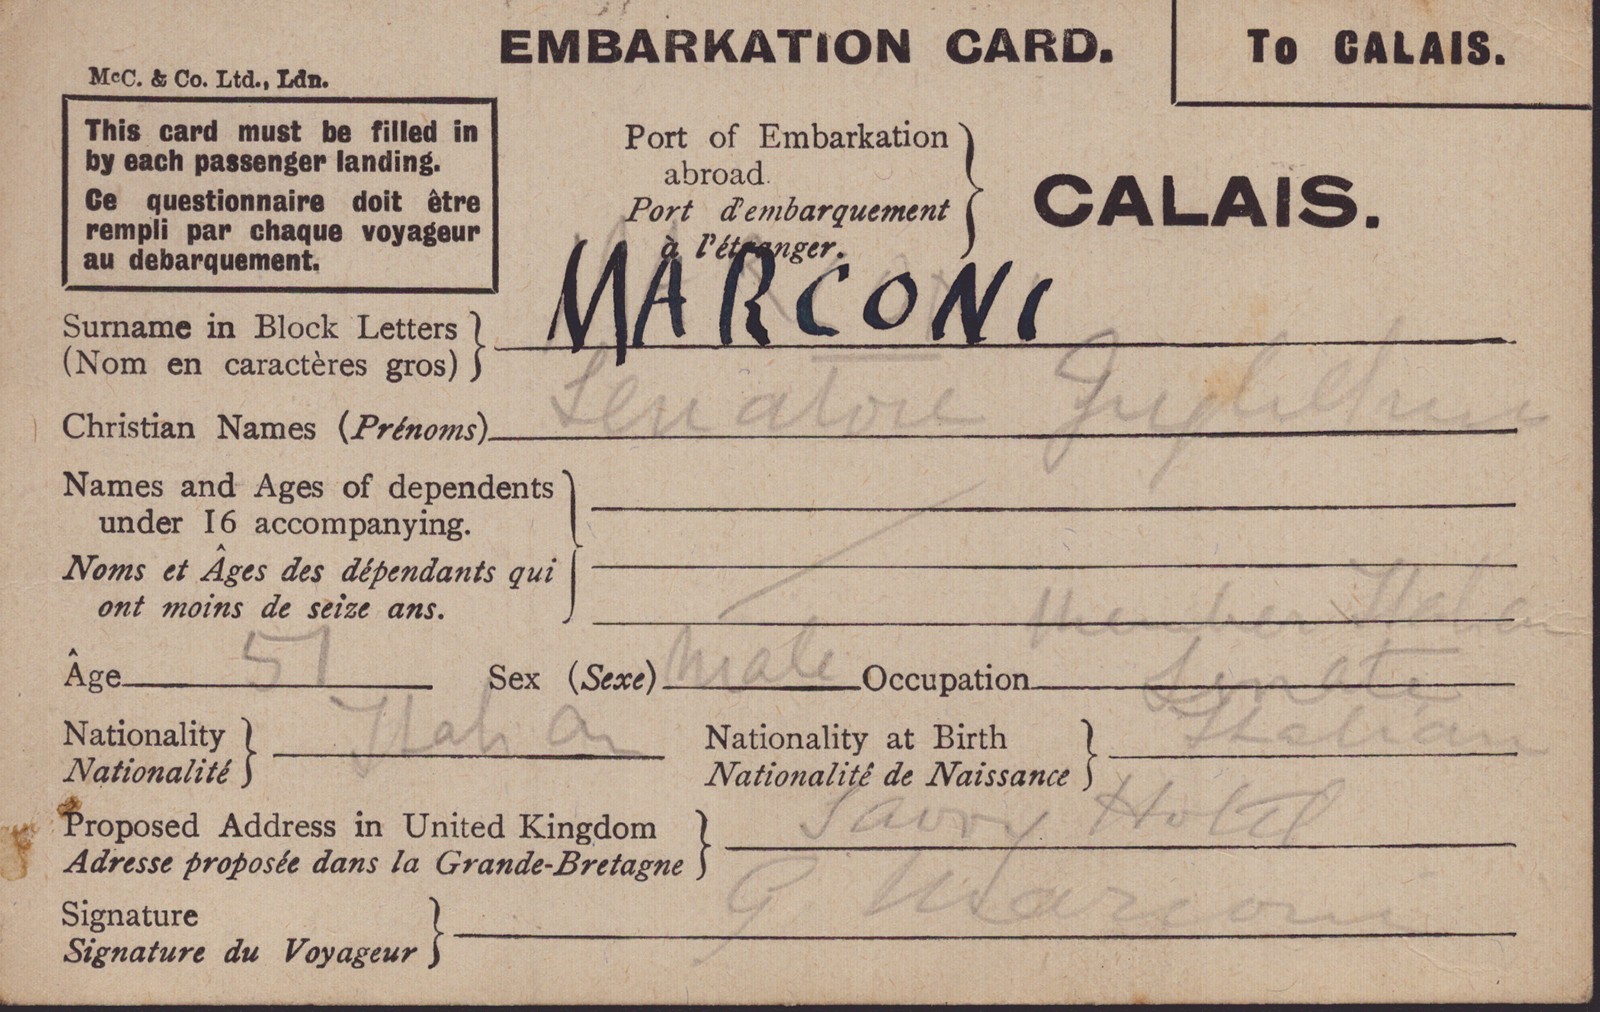 EMBARKATION CARD.
To CALAIS.
McC. & Co. Ltd., Ldn.
This card must be filled in
by each passenger landing.
Ce questionnaire doit être
rempli par chaque voyageur
au debarquement.
Port of Embarkation
abroad.
Port d'embarquement
à l'étranger.
CALAIS.
Surname in Block Letters
(Nom en caractères gros)
MARCONI
Christian Names (Prénoms) Senatore Guglielmo
Names and Ages of dependents
under 16 accompanying.
Noms et Âges des dépendants qui
ont moins de seize ans.
Âge 51 Sex (Sexe) Male Occupation Member Italian
Senate
Nationality
Nationalité
Italian
Nationality at Birth
Nationalité de Naissance
Italian
Proposed Address in United Kingdom
Adresse proposée dans la Grande-Bretagne
Savoy Hotel
Signature
Signature du Voyageur
G. Marconi